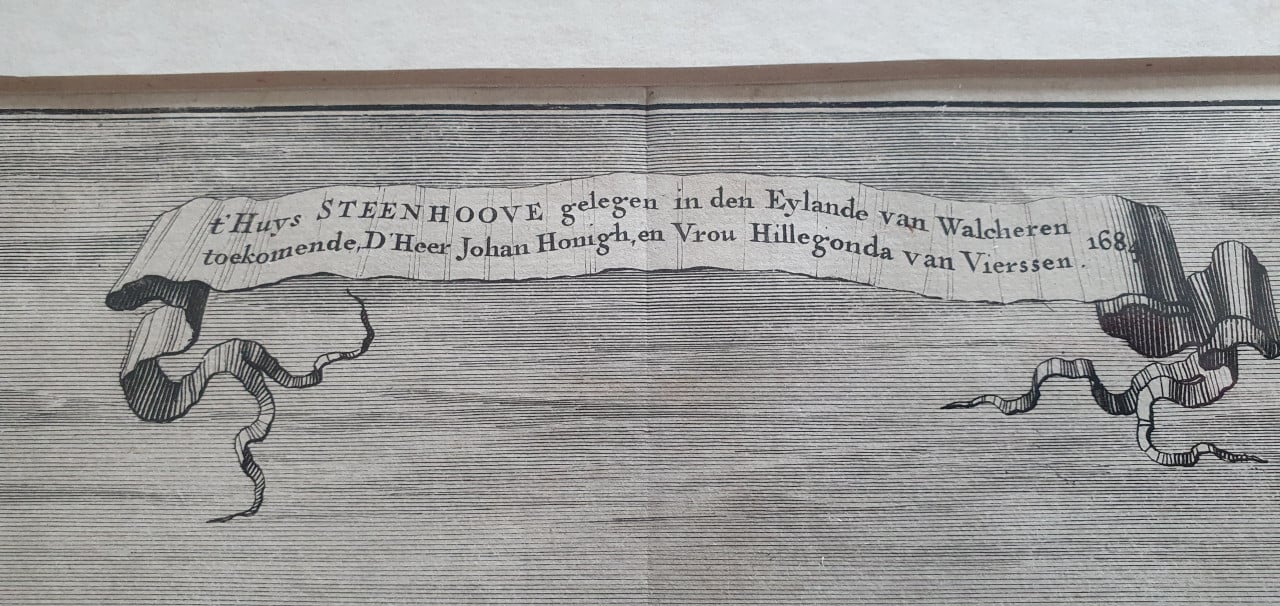 t'Huys STEENHOOVE gelegen in den Eylande van Walcheren
toekomende, D'Heer Johan Honigh, en Vrou Hillegonda van Vierssen. 1684